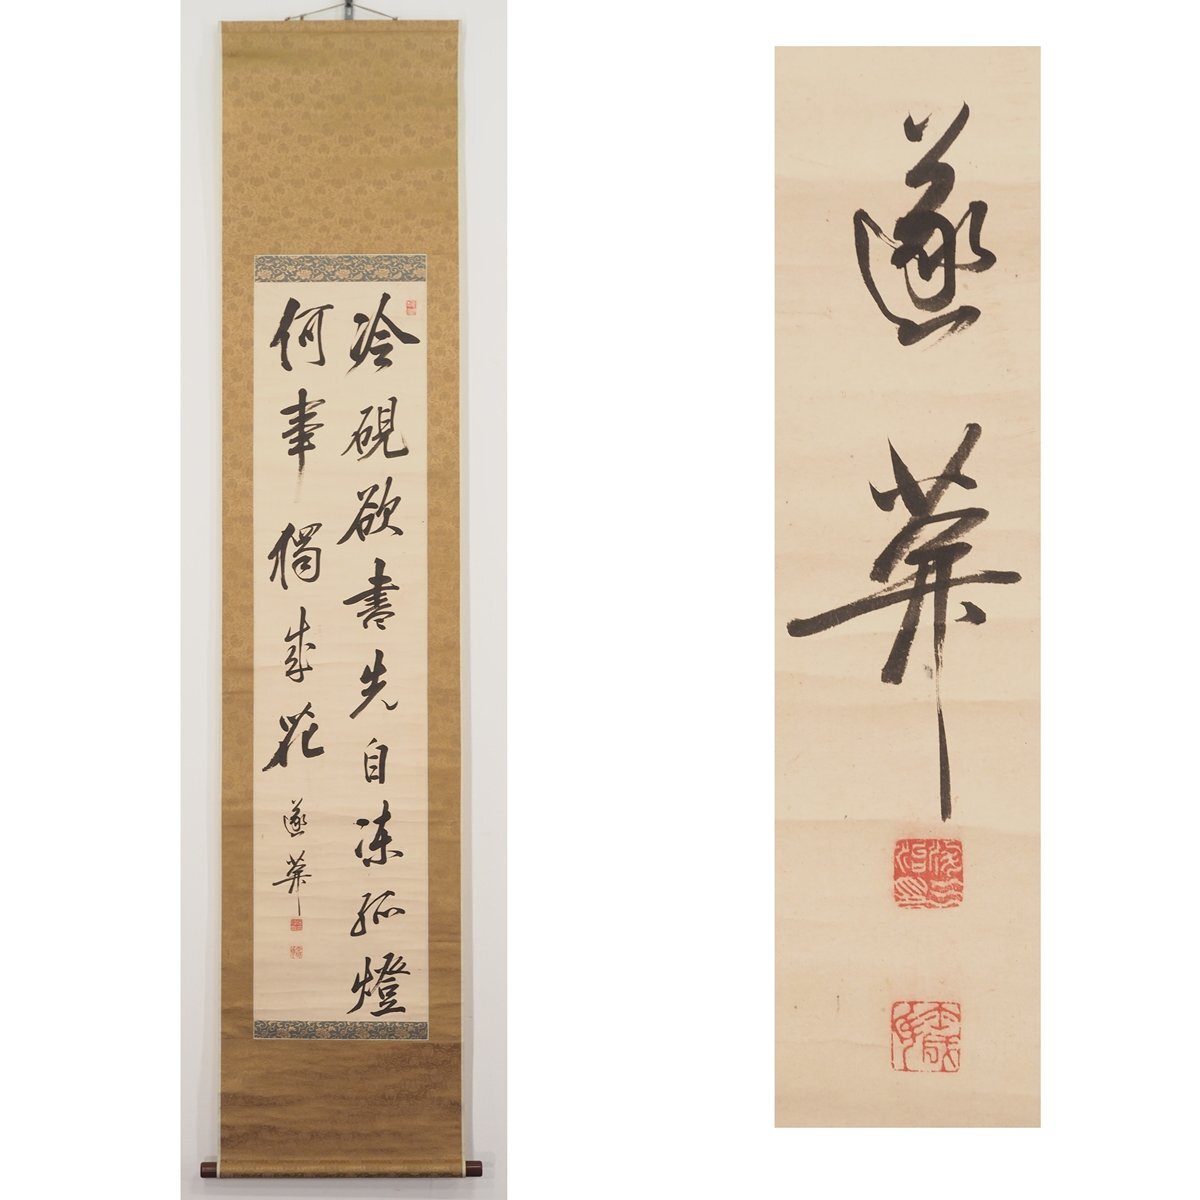 冷硯欲書先自凍孤燈
何事獨成花
遂葊
遂葊